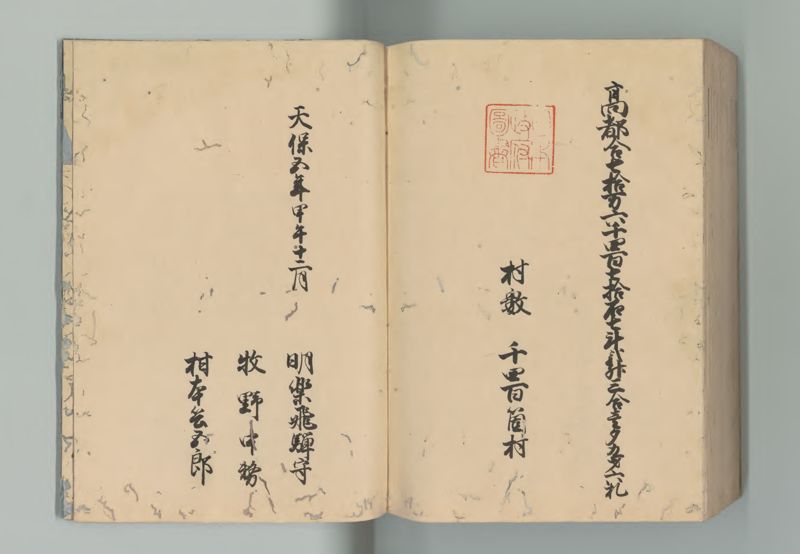 高都合七拾万六千四百七拾石七斗升二合壱夕
村数　千四百箇村
天保五年甲午十二月
明楽飛騨守
牧野中務
柑本兵五郎